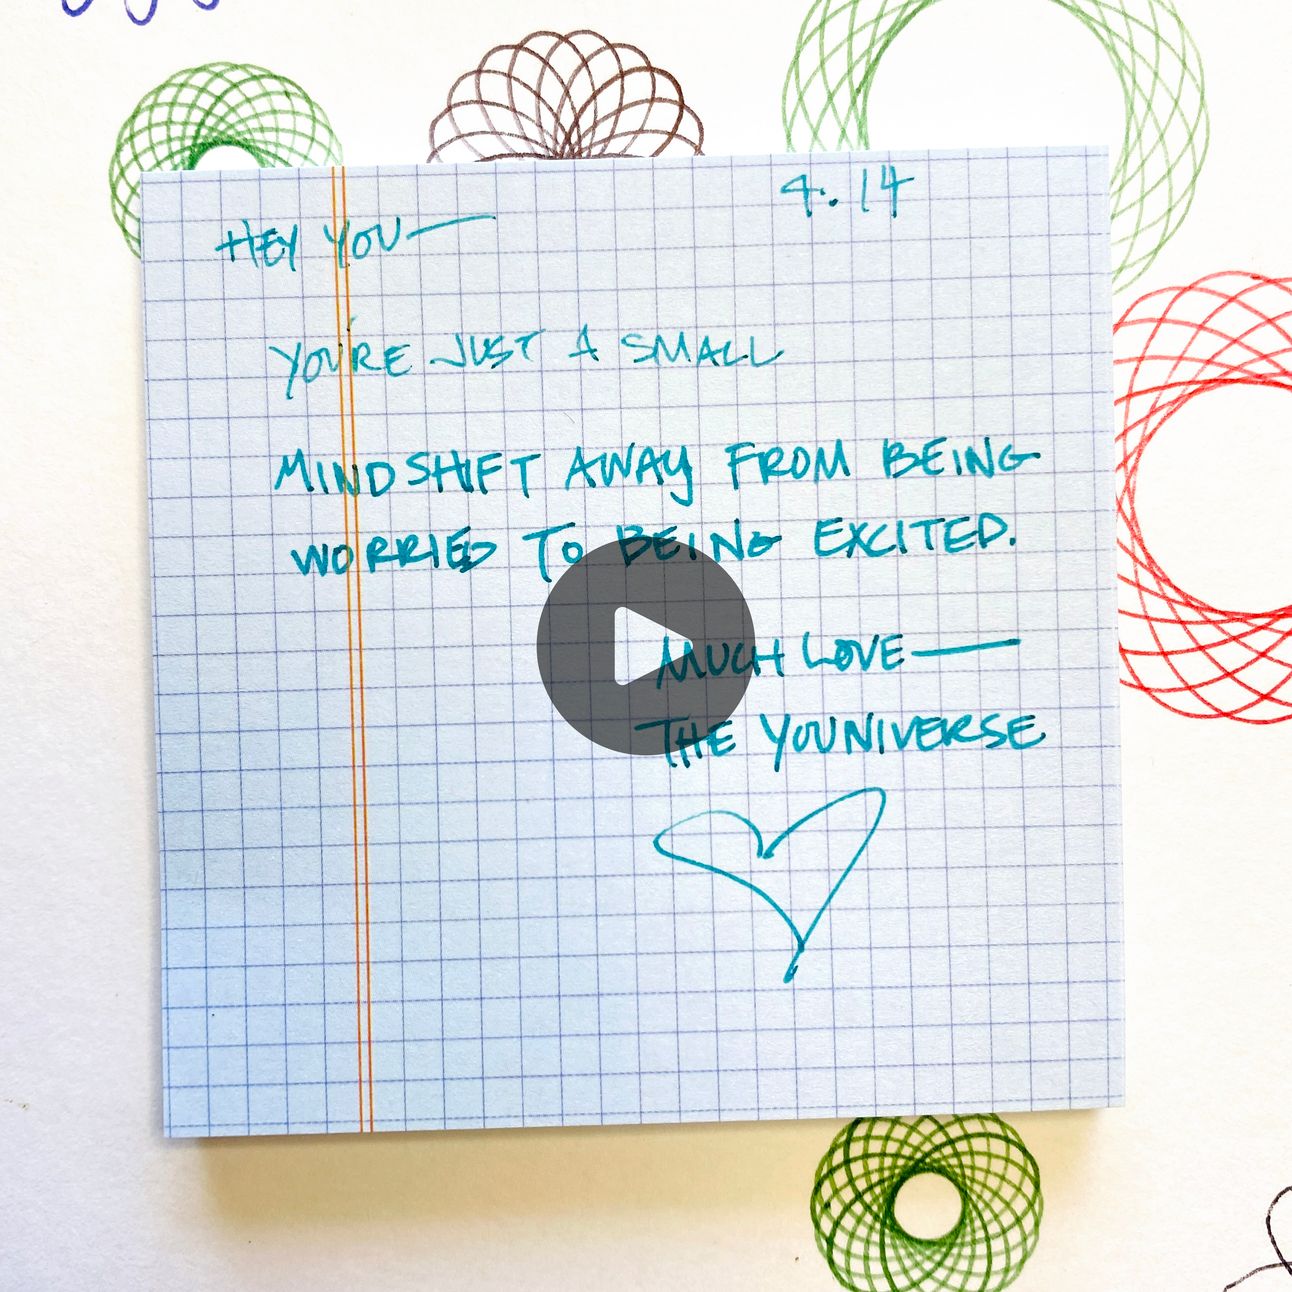 4.14
HEY YOU—
YOU'RE JUST A SMALL
MINDSHIFT AWAY FROM BEING
WORRIED TO BEING EXCITED.
MUCH LOVE—
THE YOUNIVERSE